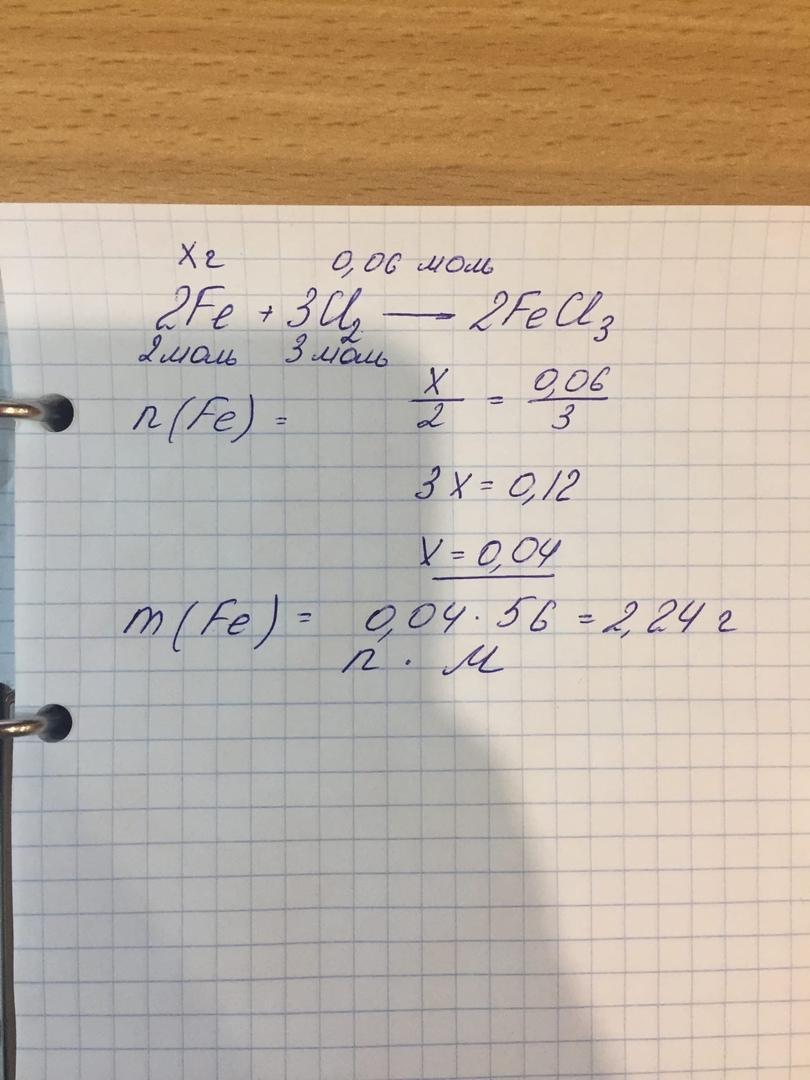 х г 0,06 моль
2Fe + 3Cl₂ → 2FeCl₃
2 моль 3 моль
n(Fe) = x/2 = 0,06/3
3x = 0,12
x = 0,04
m(Fe) = 0,04 · 56 = 2,24 г
n · M